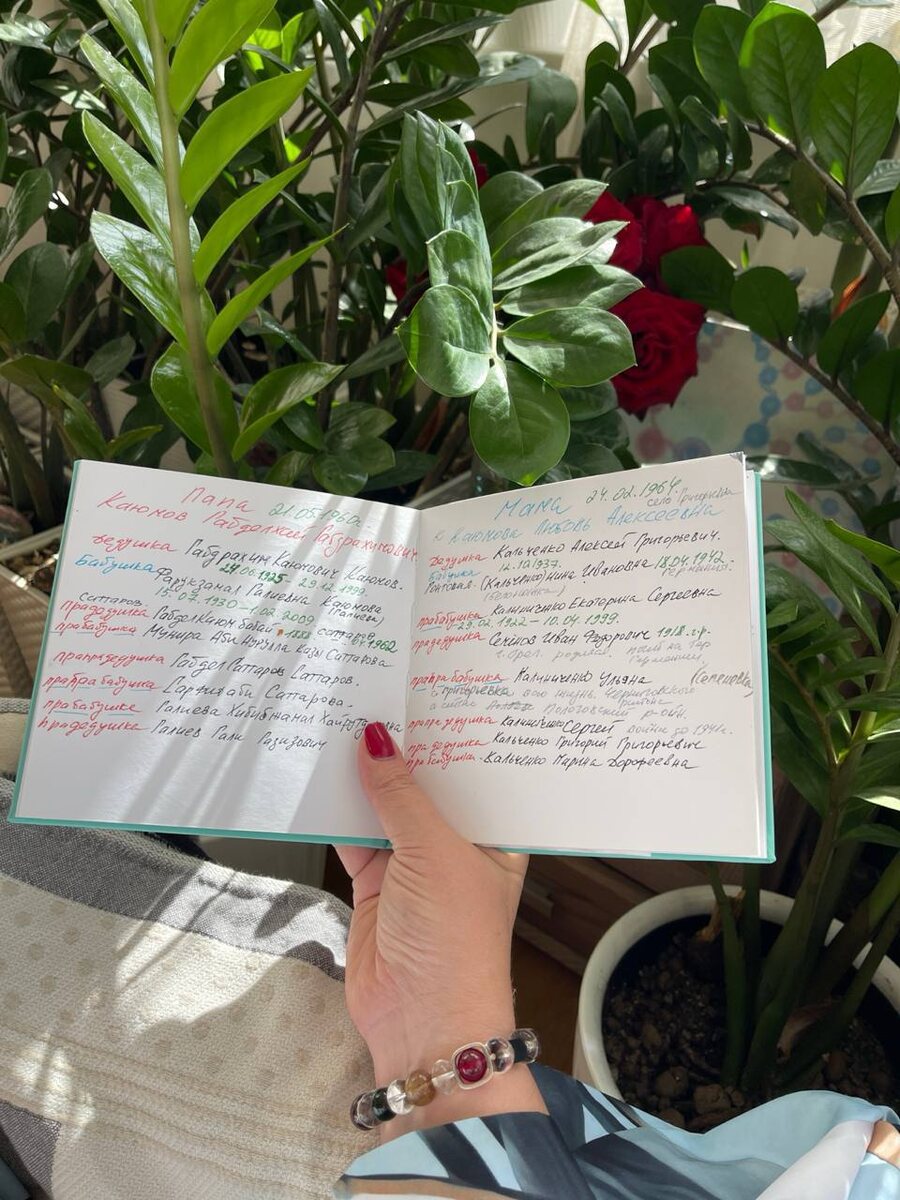 Папа 21.05.1960г
Каюмов Габделхей Габдрахимович.
дедушка Габдрахим Каюмович Каюмов.
24.06.1925 - 29.12.1999.
Бабушка Фарукзамал Галиевна Каюмова
15.07.1930 - 1.02.2009 (Галиева)
Саттаров
прадедушка Габделкаюм бабай 1888 Саттаров 1962
прабабушка Мунира Аби Нурулла Казы Саттарова
прапрадедушка Габдел Саттаров Саттаров.
прапрабабушка Сарбиғаби Саттарова.
прабабушке Галиева Хибибжамал
прадедушке Галиев Гали Газизович
Мама 24.02.1964.
село Григоровка
Каюмова Любовь Алексеевна
дедушка Кальченко Алексей Григорьевич.
12.10.1937.
Бабушка (Кальченко) Нина Ивановна 18.04.1942
Германия.
прабабушка Калиниченко Екатерина Сергеевна
29.02.1922 - 10.04.1999.
прадедушка Иван Федорович 1918 г.р.
Германии.
прапрабабушка Калиниченко Ульяна
Григоровка всю жизнь. Черниговского
района
прапрадедушка Калиниченко Сергей война до 1941г.
прадедушка Кальченко Григорий Григорьевич
прабабушка - Кальченко Марина Дорофеевна